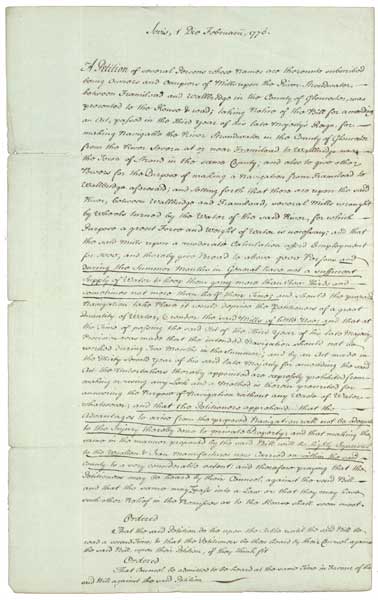 Jovis, 1 Die Februarii, 1776.
A Petition of several Persons whose Names are thereunto subscribed
being Owners and Occupiers of Mills upon the River Stroudwater,
between Framiload and Wallbridge in the County of Gloucester, was
presented to the House & read; taking Notice of the Bill for amending
an Act, passed in the third Year of his late Majesty's Reign, for
making Navigable the River Stroudwater in the County of Gloucester
from the River Severn at or near Framiload to Wallbridge near
the Town of Stroud in the same County; and also to give other
Powers for the Purpose of making a Navigation from Framiload to
Wallbridge aforesaid; and setting forth that there are upon the said
River, between Wallbridge and Framiload, several Mills wrought
by Wheels turned by the Water of the said River, for which
Purpose a great Force and Weight of Water is necessary; and that
the said Mills upon a moderate Calculation afford Employment
for and thereby give Bread to above Persons and
during the Summer Months in General have not a sufficient
Supply of Water to keep them going more than two thirds and
sometimes not more than half their Time; and should the proposed
Navigation take Place it would deprive the Petitioners of a great
Quantity of Water, & render the said Mills of little Use; and that at
the Time of passing the said Act of the Third Year of his late Majesty
Provision was made that the intended Navigation should not be
worked during Two Months in the Summer; and by an Act made in
the Thirty Second Year of his said late Majesty for amending the said
Act the Undertakers thereby appointed are expressly prohibited from
making or using any Lock and a Method is therein prescribed for
answering the Purpose of Navigation without any Waste of Water
whatsoever; and that the Petitioners apprehend that the
Advantages to arise from the proposed Navigation will not be adequate
to the Injury thereby done to private Property; and that making the
same in the manner proposed by the said Bill will be highly Injurious
to the Woollen & Iron Manufactures now carried on within the said
County to a very considerable extent; and therefore praying that the
Petitioners may be heard by their Council, against the said Bill
and that the same may not pass into a Law or that they may have
such other Relief in the Premisses as to the House shall seem meet.
Ordered
That the said Petition do lie upon the Table until the said Bill be
read a second Time; & that the Petitioners be then heard by their Council against
the said Bill, upon their Petition, if they think fit
Ordered
That Council be admitted to be heard at the same Time in Favour of the
said Bill against the said Petition